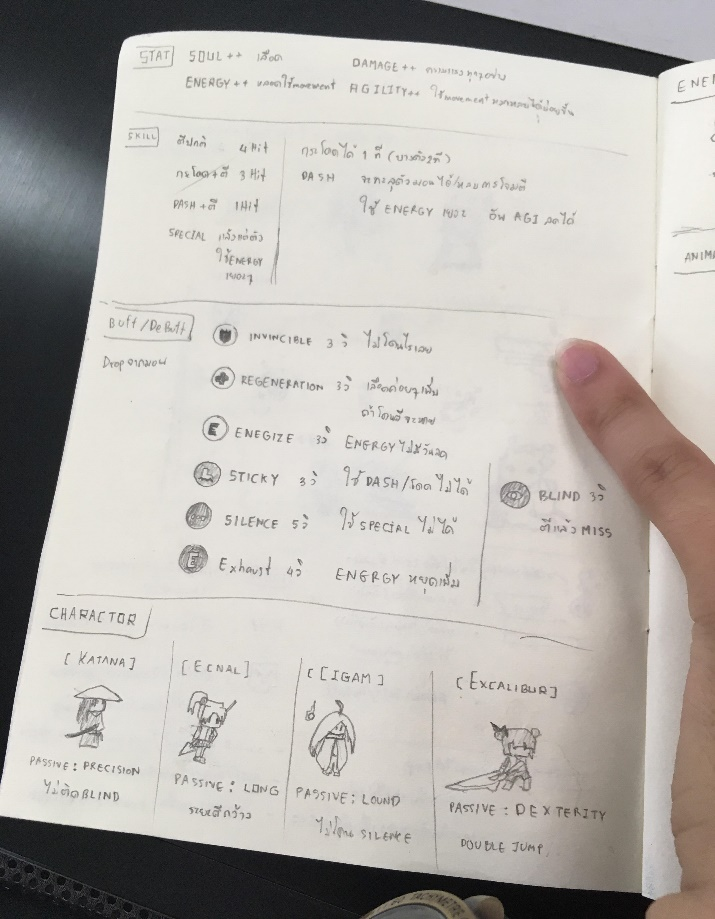 STAT
SOUL++ เลือด
DAMAGE++
ENERGY++ หลอดใช้movement
AGILITY++ ใช้movement
SKILL
ตีปกติ 4 Hit
กระโดด+ตี 3 Hit
DASH+ตี 1 Hit
SPECIAL แล้วแต่ตัว
ใช้ENERGY
เยอะๆ
กระโดดได้ 1 ที (บางตัว2ที)
DASH
ใช้ ENERGY เยอะ อัพ AGI ลดได้
Buff/DeBuff
Drop จากมอน
INVINCIBLE 3 วิ ไม่โดนไรเลย
REGENERATION 3วิ เลือดค่อยๆเพิ่ม
ถ้าโดนตีจะหาย
E ENEGIZE 3วิ ENERGY ไม่มีวันลด
STICKY 3วิ ใช้ DASH/โดด ไม่ได้
SILENCE 5วิ ใช้ SPECIAL ไม่ได้
E Exhaust 4วิ ENERGY หยุดเพิ่ม
BLIND 3วิ
ตีแล้ว MISS
CHARACTOR
[KATANA]
PASSIVE : PRECISION
ไม่ติด BLIND
[ECNAL]
PASSIVE : LONG
ระยะตีกว้าง
[CIGAM]
PASSIVE : LOUND
ไม่โดน SILENCE
[EXCALIBUR]
PASSIVE : DEXTERITY
DOUBLE JUMP.
ENE
ANIMA